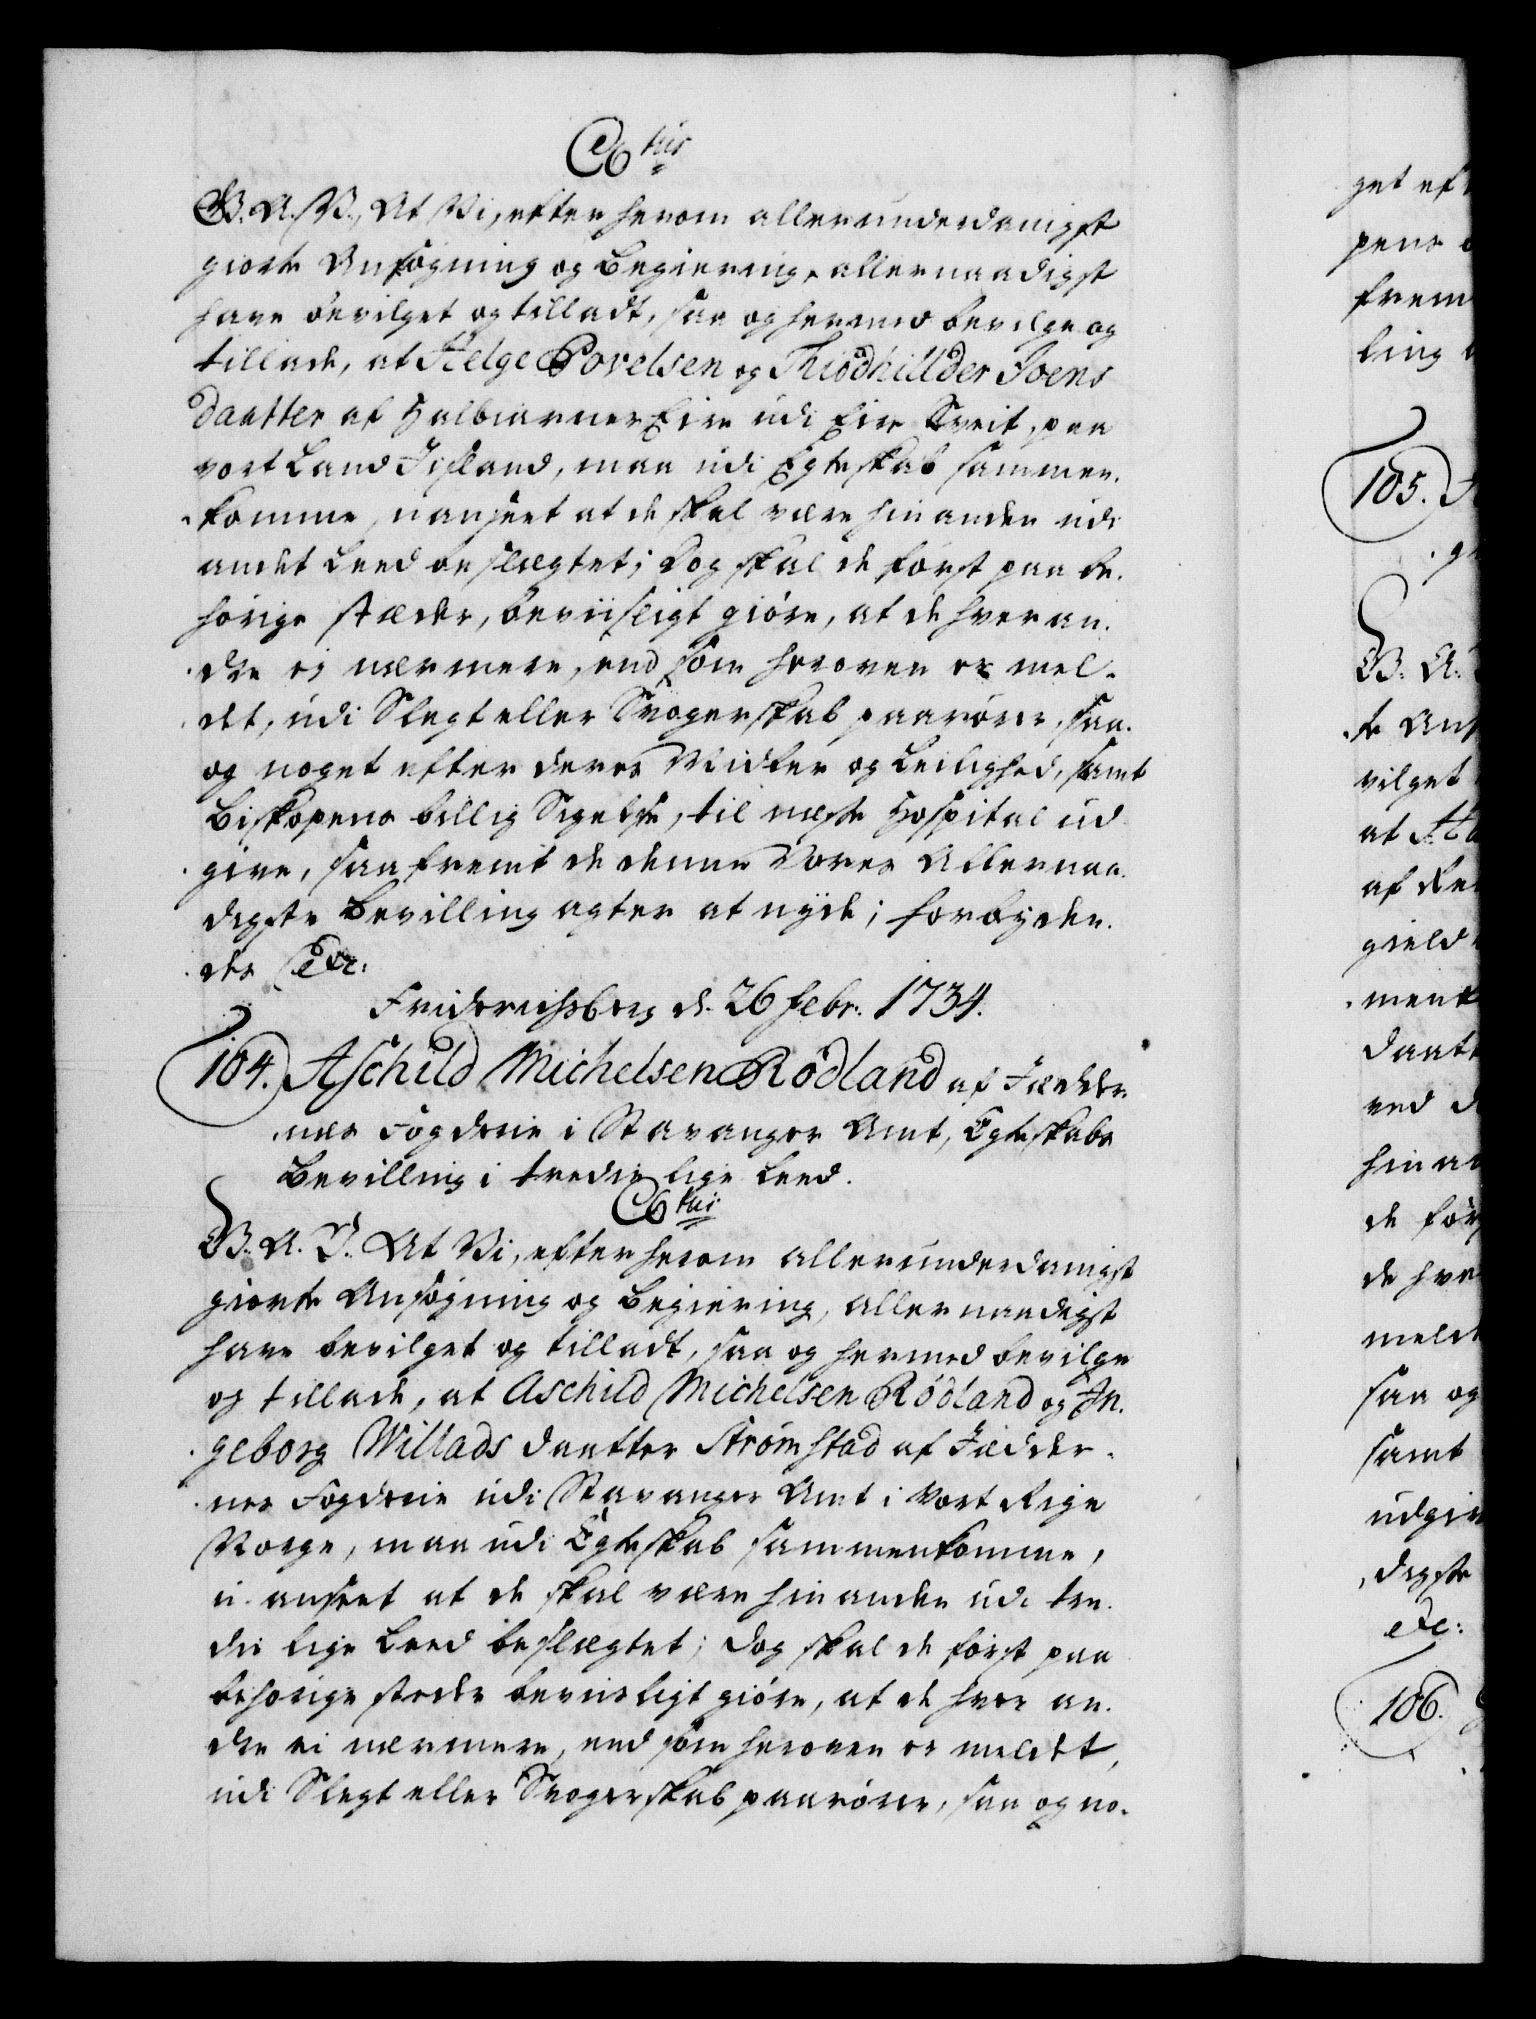 C6tus
G. A. V., At Vi, efter herom allerunderdanigst
giorte Ansøgning og Begiering, allernaadigst
have bevilget og tilladt, saa og hermed bevilge og
tillade, at Helge Povelsen og Thiodhillder Joens
Daatter af Halbiarner Eire udi Eire Sveit, paa
vort Land Iisland, maa udi Egteskab sammen-
komme, uanseet at de skal være hinanden udi
andet Leed beslægtet; Dog skal de først paa be-
hørige stæder, beviisligt giøre, at de hveran-
dre ej nærmere, end som heroven er mel-
det, udi Slegt eller Svogerskab paarører, saa-
og noget efter deres Midler og Leilighed, samt
Biskopens billig Sigelse, til næste Hospital ud-
give, saafremt de denne Vores Allernaa-
digste Bevilling agter at nyde; Forbyden-
des Etc:
Friderichsberg d. 26 Febr. 1734.
104. Aschild Michelsen Rødland af Jædder-
nes Fogderie i Stavanger Amt, Egteskabs
Bevilling i tredie lige Leed.
C6tus
G. A. V. At Vi, efter herom allerunderdanigst
giorte Ansøgning og Begiering, allernaadigst
have bevilget og tilladt, saa og hermed bevilge
og tillade, at Aschild Michelsen Rødland og In-
geborg Willads Daatter Strømstad af Jædder-
nes Fogderie udi Stavanger Amt i vort Rige
Norge, maa udi Egteskab sammenkomme,
u-anseet at de skal være hinanden udi tre-
die lige Leed beslægtet; Dog skal de først paa
behørige steder beviisligt giøre, at de hver an-
dre ei nærmere, end som heroven er meldt,
udi Slegt eller Svogerskab paarører, saa og no-
get eft
pens
frem
ling
105.
G. A.
te Ans
vilget
at
af
gield
ment
Daatt
ved d
hinan
de før
de hve
meld
saa og
samt
udgiv
digste
etc:
106.